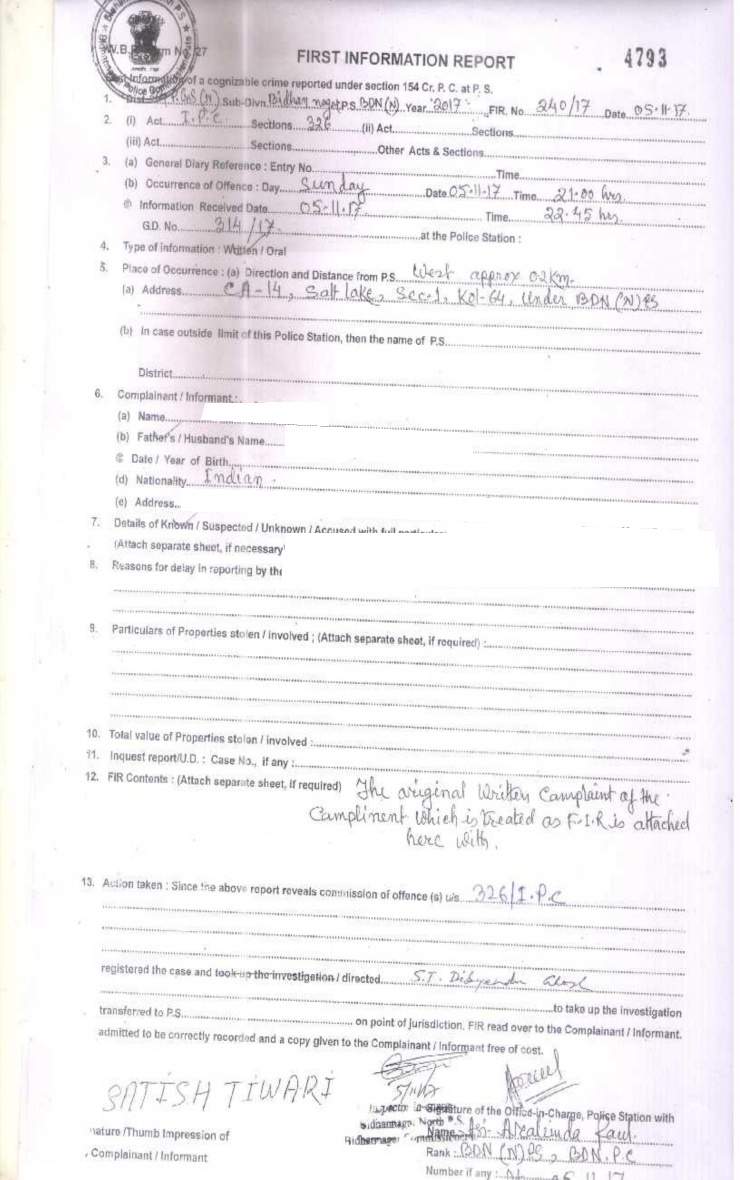 W.B.P. Form No. 27
FIRST INFORMATION REPORT
4793
First Information of a cognizable crime reported under section 154 Cr. P. C. at P. S.
1. Sub-Divn. Bidhan nagar P.S. BDN(N) Year 2017 FIR. No 240/17 Date 05.11.17.
2. (i) Act I.P.C. Sections 326 (ii) Act Sections
(iii) Act Sections Other Acts & Sections
3. (a) General Diary Reference : Entry No. Time
(b) Occurrence of Offence : Day Sunday Date 05.11.17 Time 21.00 hrs.
© Information Received Date 05.11.17. Time 22.45 hrs.
G.D. No. 314/17. at the Police Station :
4. Type of information : Written / Oral
5. Place of Occurrence : (a) Direction and Distance from P.S. West approx 02 km.
(a) Address CA-14, Salt lake, Sec-1, Kol-64, Under BDN(N)PS
(b) In case outside limit of this Police Station, then the name of P.S.
District
6. Complainant / Informant :
(a) Name
(b) Father's / Husband's Name
© Date / Year of Birth
(d) Nationality Indian.
(e) Address
7. Details of Known / Suspected / Unknown / Accused with full
(Attach separate sheet, if necessary
8. Reasons for delay in reporting by the
9. Particulars of Properties stolen / involved ; (Attach separate sheet, if required) :
10. Total value of Properties stolen / involved :
11. Inquest report/U.D. : Case No., if any :
12. FIR Contents : (Attach separate sheet, if required) The original Written Complaint of the
Complinent which is treated as F.I.R is attached
here with.
13. Action taken : Since the above report reveals commission of offence (s) u/s. 326/I.P.C
registered the case and took up the investigation / directed S.I. Dibyendu Ghosh
to take up the investigation
transferred to P.S. on point of jurisdiction, FIR read over to the Complainant / Informant.
admitted to be correctly recorded and a copy given to the Complainant / Informant free of cost.
SATISH TIWARI
5/11/17
Signature of the Officer-in-Charge, Police Station with
nature /Thumb Impression of
Complainant / Informant
Name :
Rank : BDN (N) PS, BDN. P.C
Number if any :